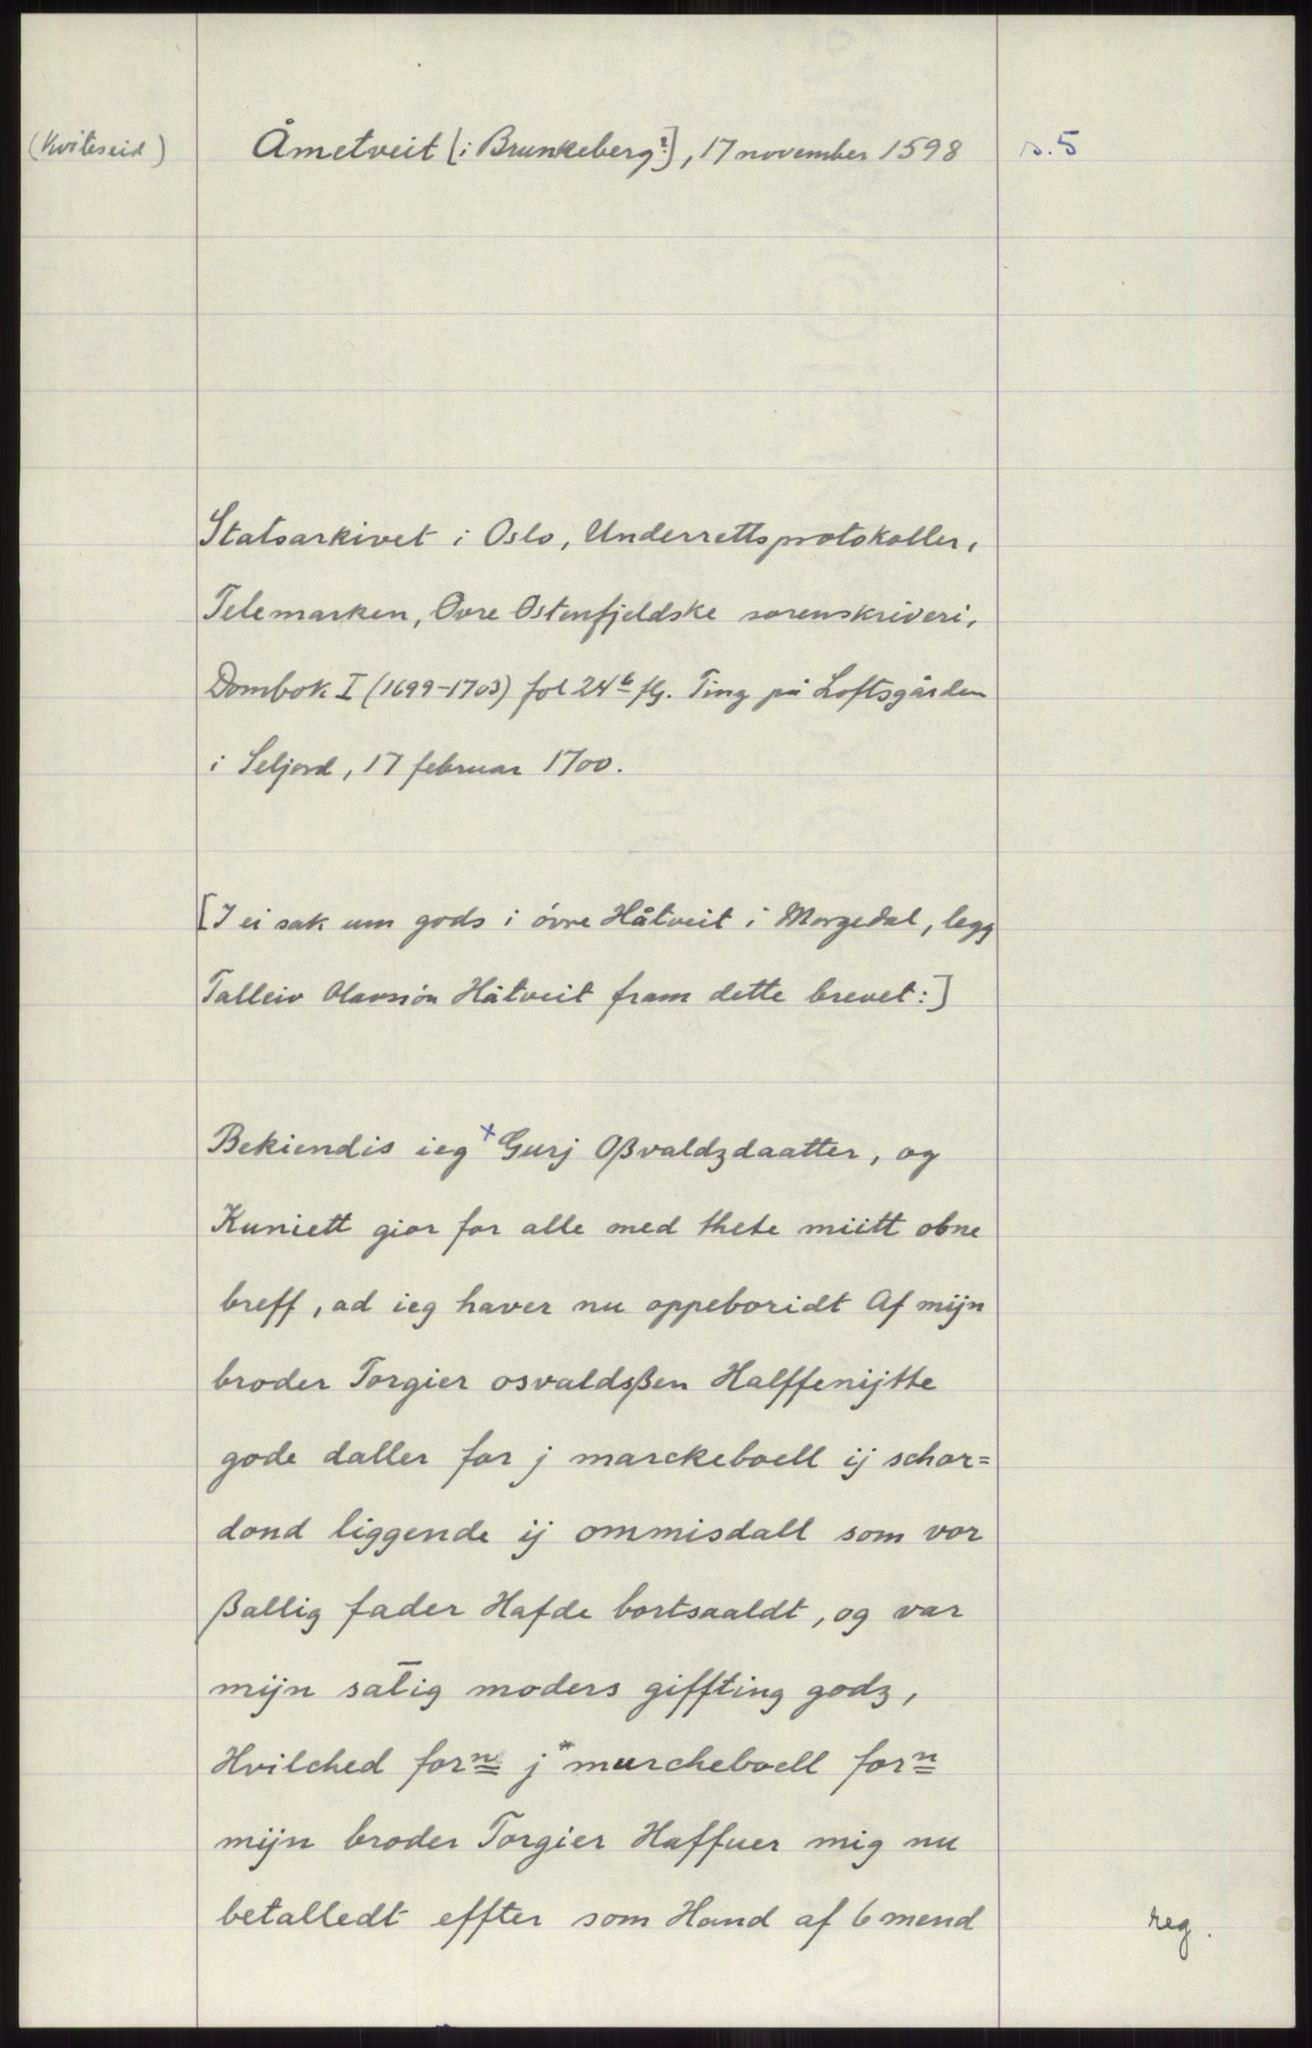 (Kviteseid)
Åmetveit [i Brunkeberg?], 17 november 1598
s. 5
Statsarkivet i Oslo, Underrettsprotokoller,
Telemarken, Øvre Østenfjeldske sorenskriveri,
Dombok I (1699-1703) fol 24b flg. Ting på Loftsgården
i Seljord, 17 februar 1700.
[I ei sak um gods i øvre Håtveit i Morgedal, legg
Talleiv Olavsson Håtveit fram dette brevet:]
Bekiendis ieg x Gurj Oßvaldzdaatter, og
Kuniett giør for alle med thete miitt obne
breff, ad ieg haver nu oppeboridt Af mijn
broder Torgier osvaldsßen Halffenijtte
gode daller for j marckeboell ij schor=
dond liggende ij ommisdall som vor
ßallig fader Hafde bortsaaldt, og var
mijn salig moders giffting godz,
Hvilched forn j * murcheboell forn
mijn broder Torgier Haffuer mig nu
betalledt effter som Hand af 6 mend
reg.